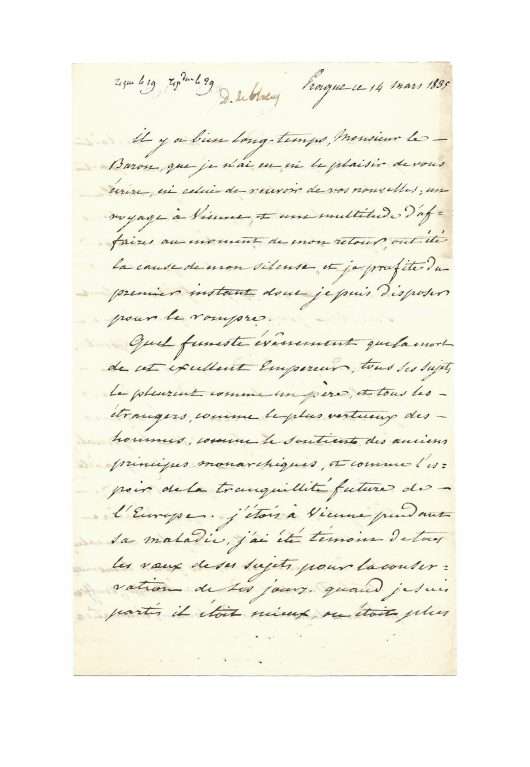 reçu le 19, Rép.due le 29
Prague ce 14 mars 1835
il y a bien long-temps, Monsieur le
Baron, que je n'ai eu, ni le plaisir de vous
écrire, ni celui de recevoir de vos nouvelles; un
voyage à Vienne, et une multitude d'af=
faires au moment de mon retour, ont été
la cause de mon silense, et je profite du
premier instant dont je puis disposer
pour le rompre.
Quel funeste évênement que la mort
de cet exellent Empereur, tous ses sujets
le pleurent comme un père, et tous les
étrangers, comme le plus vertueux des
hommes, comme le soutient des anciens
principes monarchiques, et comme l'es=
poir de la tranquillité future de
l'Europe. j'étois à Vienne pendant
sa maladie, j'ai été témoin de tous
les vœux de ses sujets pour la conser=
vation de ses jours. quand je suis
parti il étoit mieux, on étoit plus